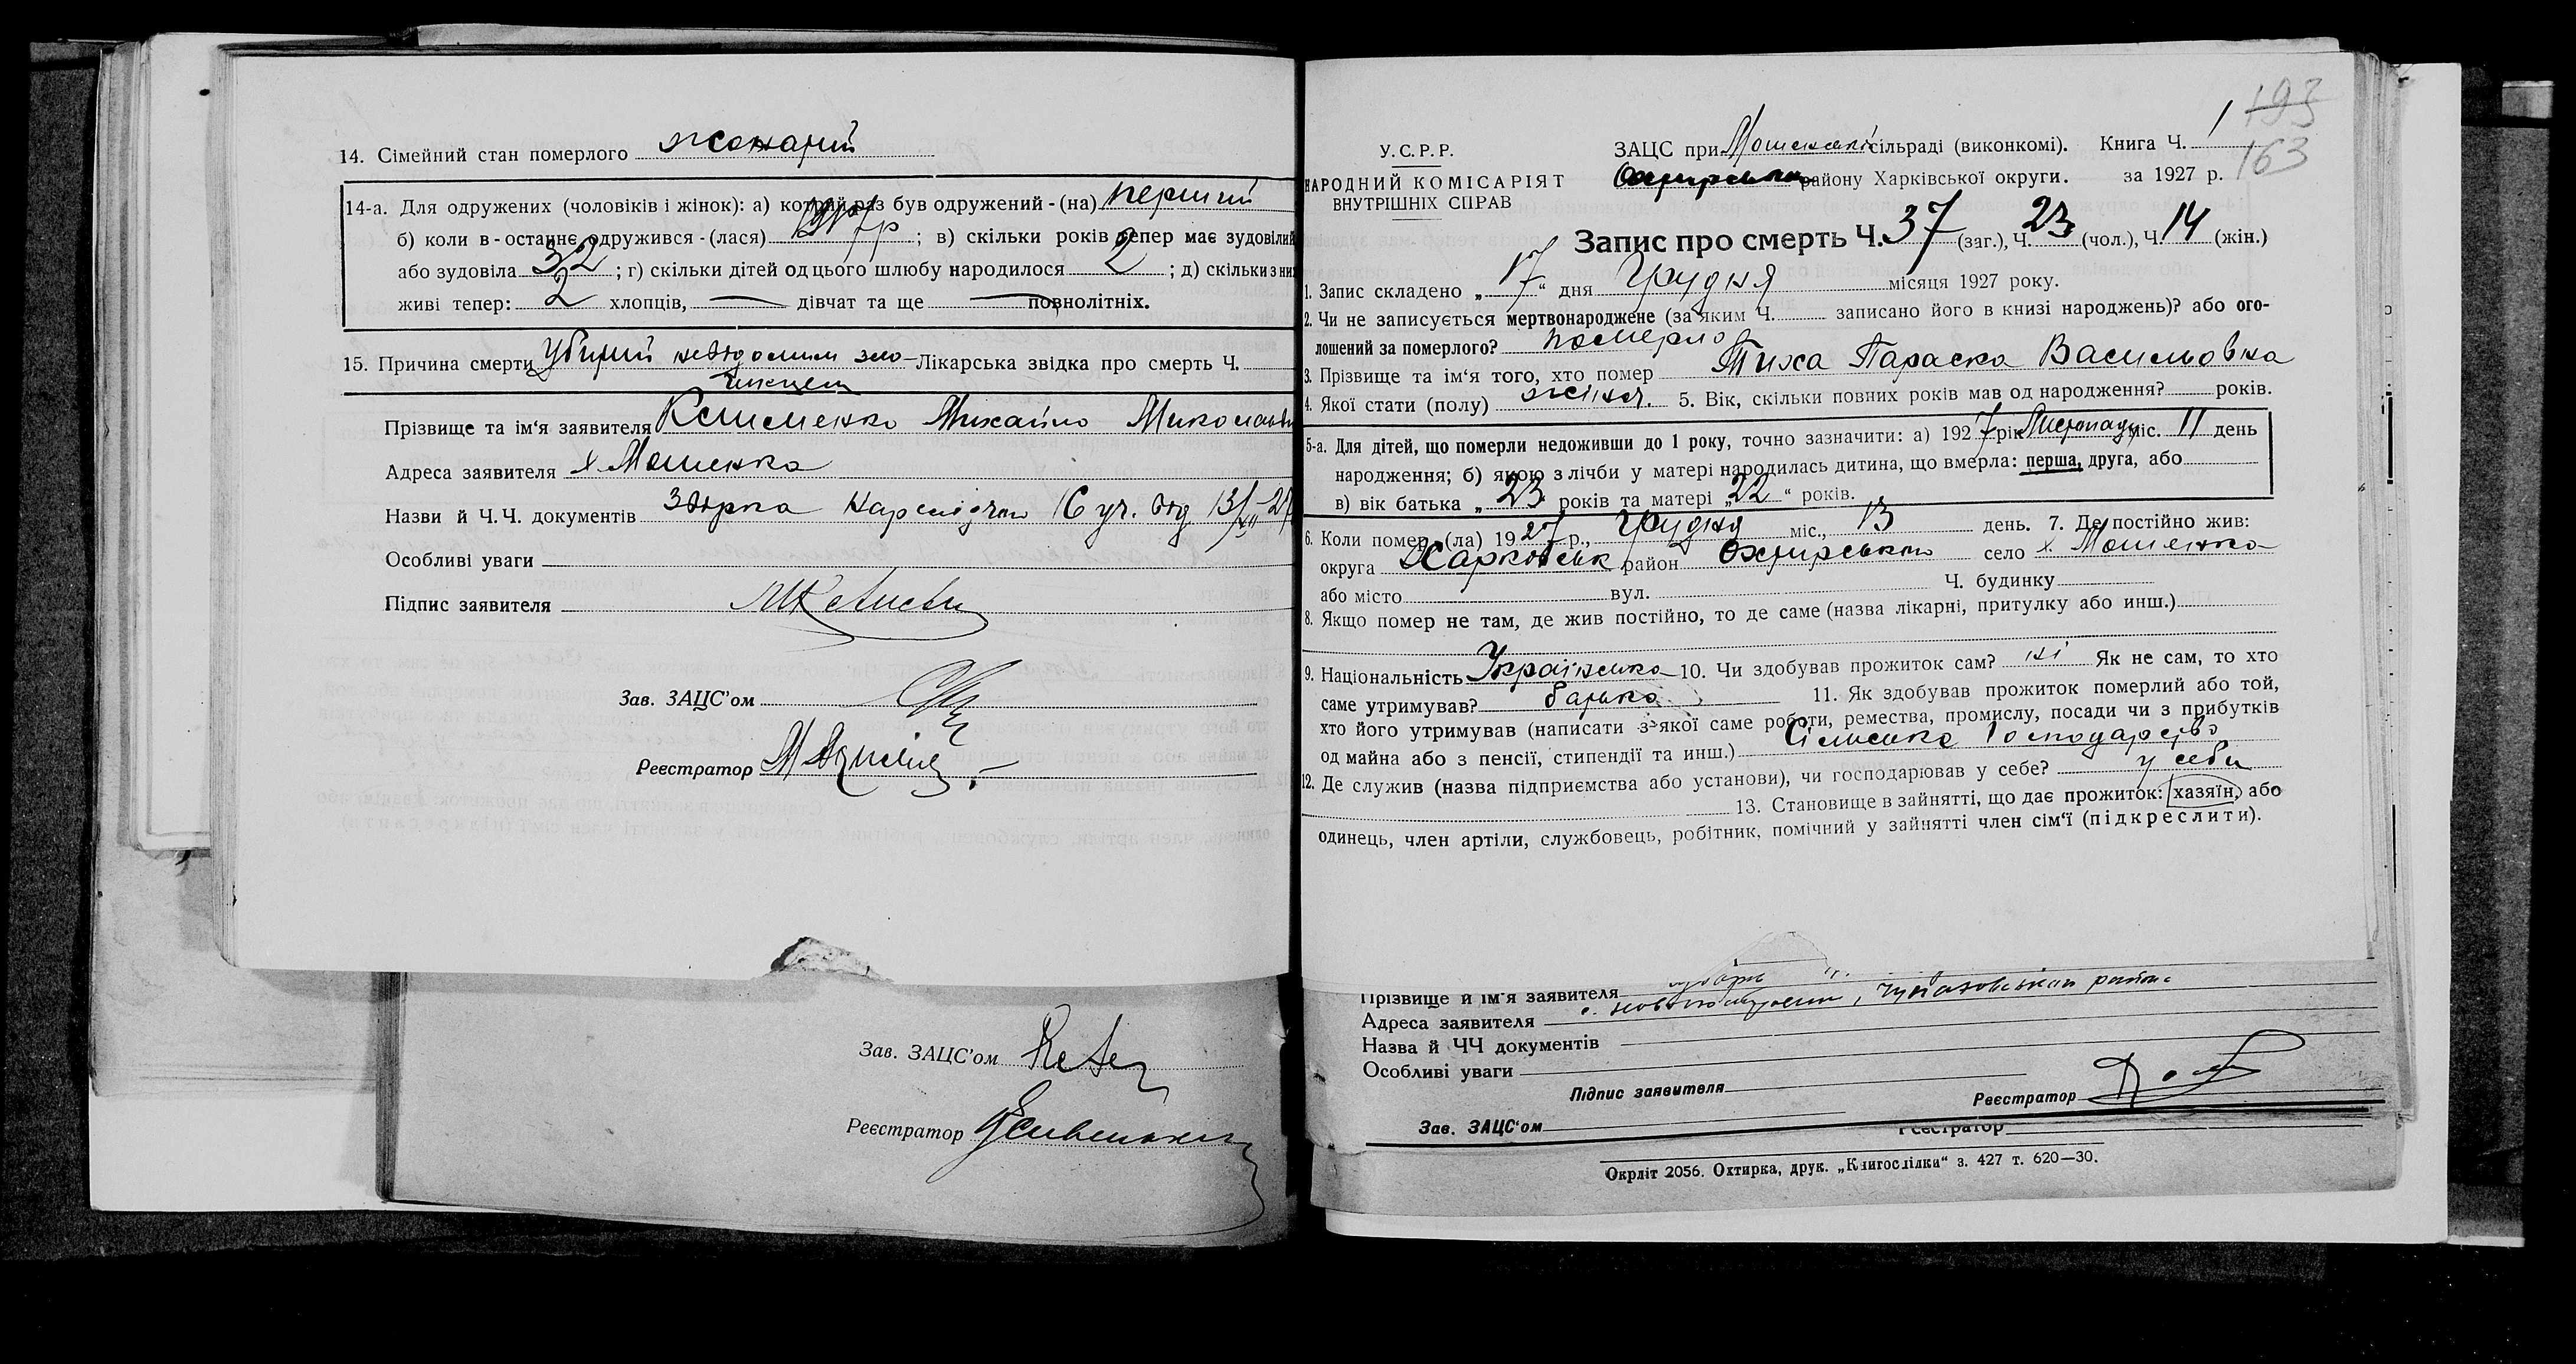 14. Сімейний стан померлого жонатий
14-а. Для одружених (чоловіків і жінок): а) котрий раз був одружений - (на) перший
б) коли в - останнє одружився - (лася) ; в) скільки років тепер має зудовілий
або зудовіла 32 ; г) скільки дітей од цього шлюбу народилося 2 ; д) скільки з них
живі тепер: 2 хлопців, — дівчат та ще — повнолітніх.
15. Причина смерти Убитий невідомим зло- Лікарська звідка про смерть Ч.
чинцем
Прізвище та ім‘я заявителя Клименко Михайло
Адреса заявителя х. Мошенка
Назви й Ч.Ч. документів
Особливі уваги
Підпис заявителя
Зав. ЗАЦС’ом
Реєстратор
Зав. ЗАЦС’ом
Реєстратор
193
163
У.С.Р.Р.
НАРОДНИЙ КОМІСАРІЯТ
ВНУТРІШНІХ СПРАВ
ЗАЦС при сільраді (виконкомі). Книга Ч. 1
району Харківської округи. за 1927 р.
Запис про смерть Ч. 37 (заг.), Ч. 23 (чол.), Ч. 14 (жін.)
1. Запис складено „ 17 “ дня Грудня місяця 1927 року.
2. Чи не записується мертвонароджене (за яким Ч. записано його в книзі народжень)? або ого-
лошений за померлого? померло
3. Прізвище та ім‘я того, хто помер Тиха Параска Васильовна
4. Якої стати (полу) жіноч. 5. Вік, скільки повних років мав од народження? років.
5-а. Для дітей, що померли недоживши до 1 року, точно зазначити: а) 1927 рік Листопаду міс. 11 день
народження; б) якою з лічби у матері народилась дитина, що вмерла: перша, друга, або
в) вік батька „ 23 років та матері „22 “ років.
6. Коли помер (ла) 1927 р., Грудня міс., 13 день. 7. Де постійно жив:
округа Харковськ район Охтирського село х. Мошенка
або місто вул. Ч. будинку
8. Якщо помер не там, де жив постійно, то де саме (назва лікарні, притулку або инш.)
9. Національність Українська 10. Чи здобував прожиток сам? ні Як не сам, то хто
саме утримував? батько 11. Як здобував прожиток померлий або той,
хто його утримував (написати з якої саме роботи, ремества, промислу, посади чи з прибутків
од майна або з пенсії, стипендії та инш.) Сільське Господарство
12. Де служив (назва підприємства або установи), чи господарював у себе? у себи
13. Становище в зайнятті, що дає прожиток: хазяїн, або
одинець, член артіли, службовець, робітник, помічний у зайнятті член сім‘ї (підкреслити).
Прізвище й ім‘я заявителя
Адреса заявителя
Назва й ЧЧ документів
Особливі уваги
Підпис заявителя
Реєстратор
Зав. ЗАЦС‘ом
Реєстратор
Окрліт 2056. Охтирка, друк. „Книгоспілки“ з. 427 т. 620—30.